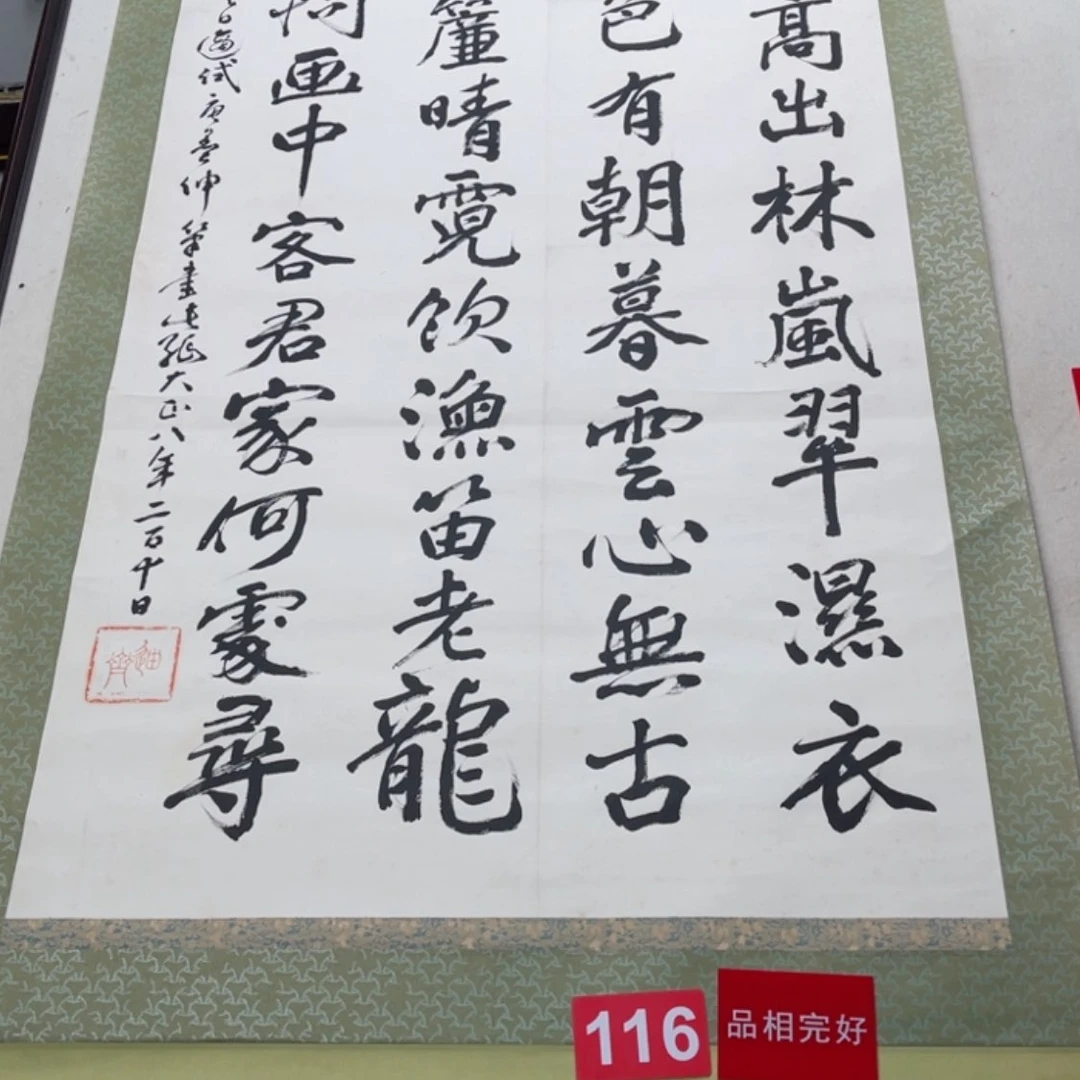 高出林嵐翠濕衣
色有朝暮雲心無古
簾晴霓飲漁笛老龍
椅画中客君家何處尋
日適試唐墨仲筆書此紙大正八年二百十日
116
品相完好